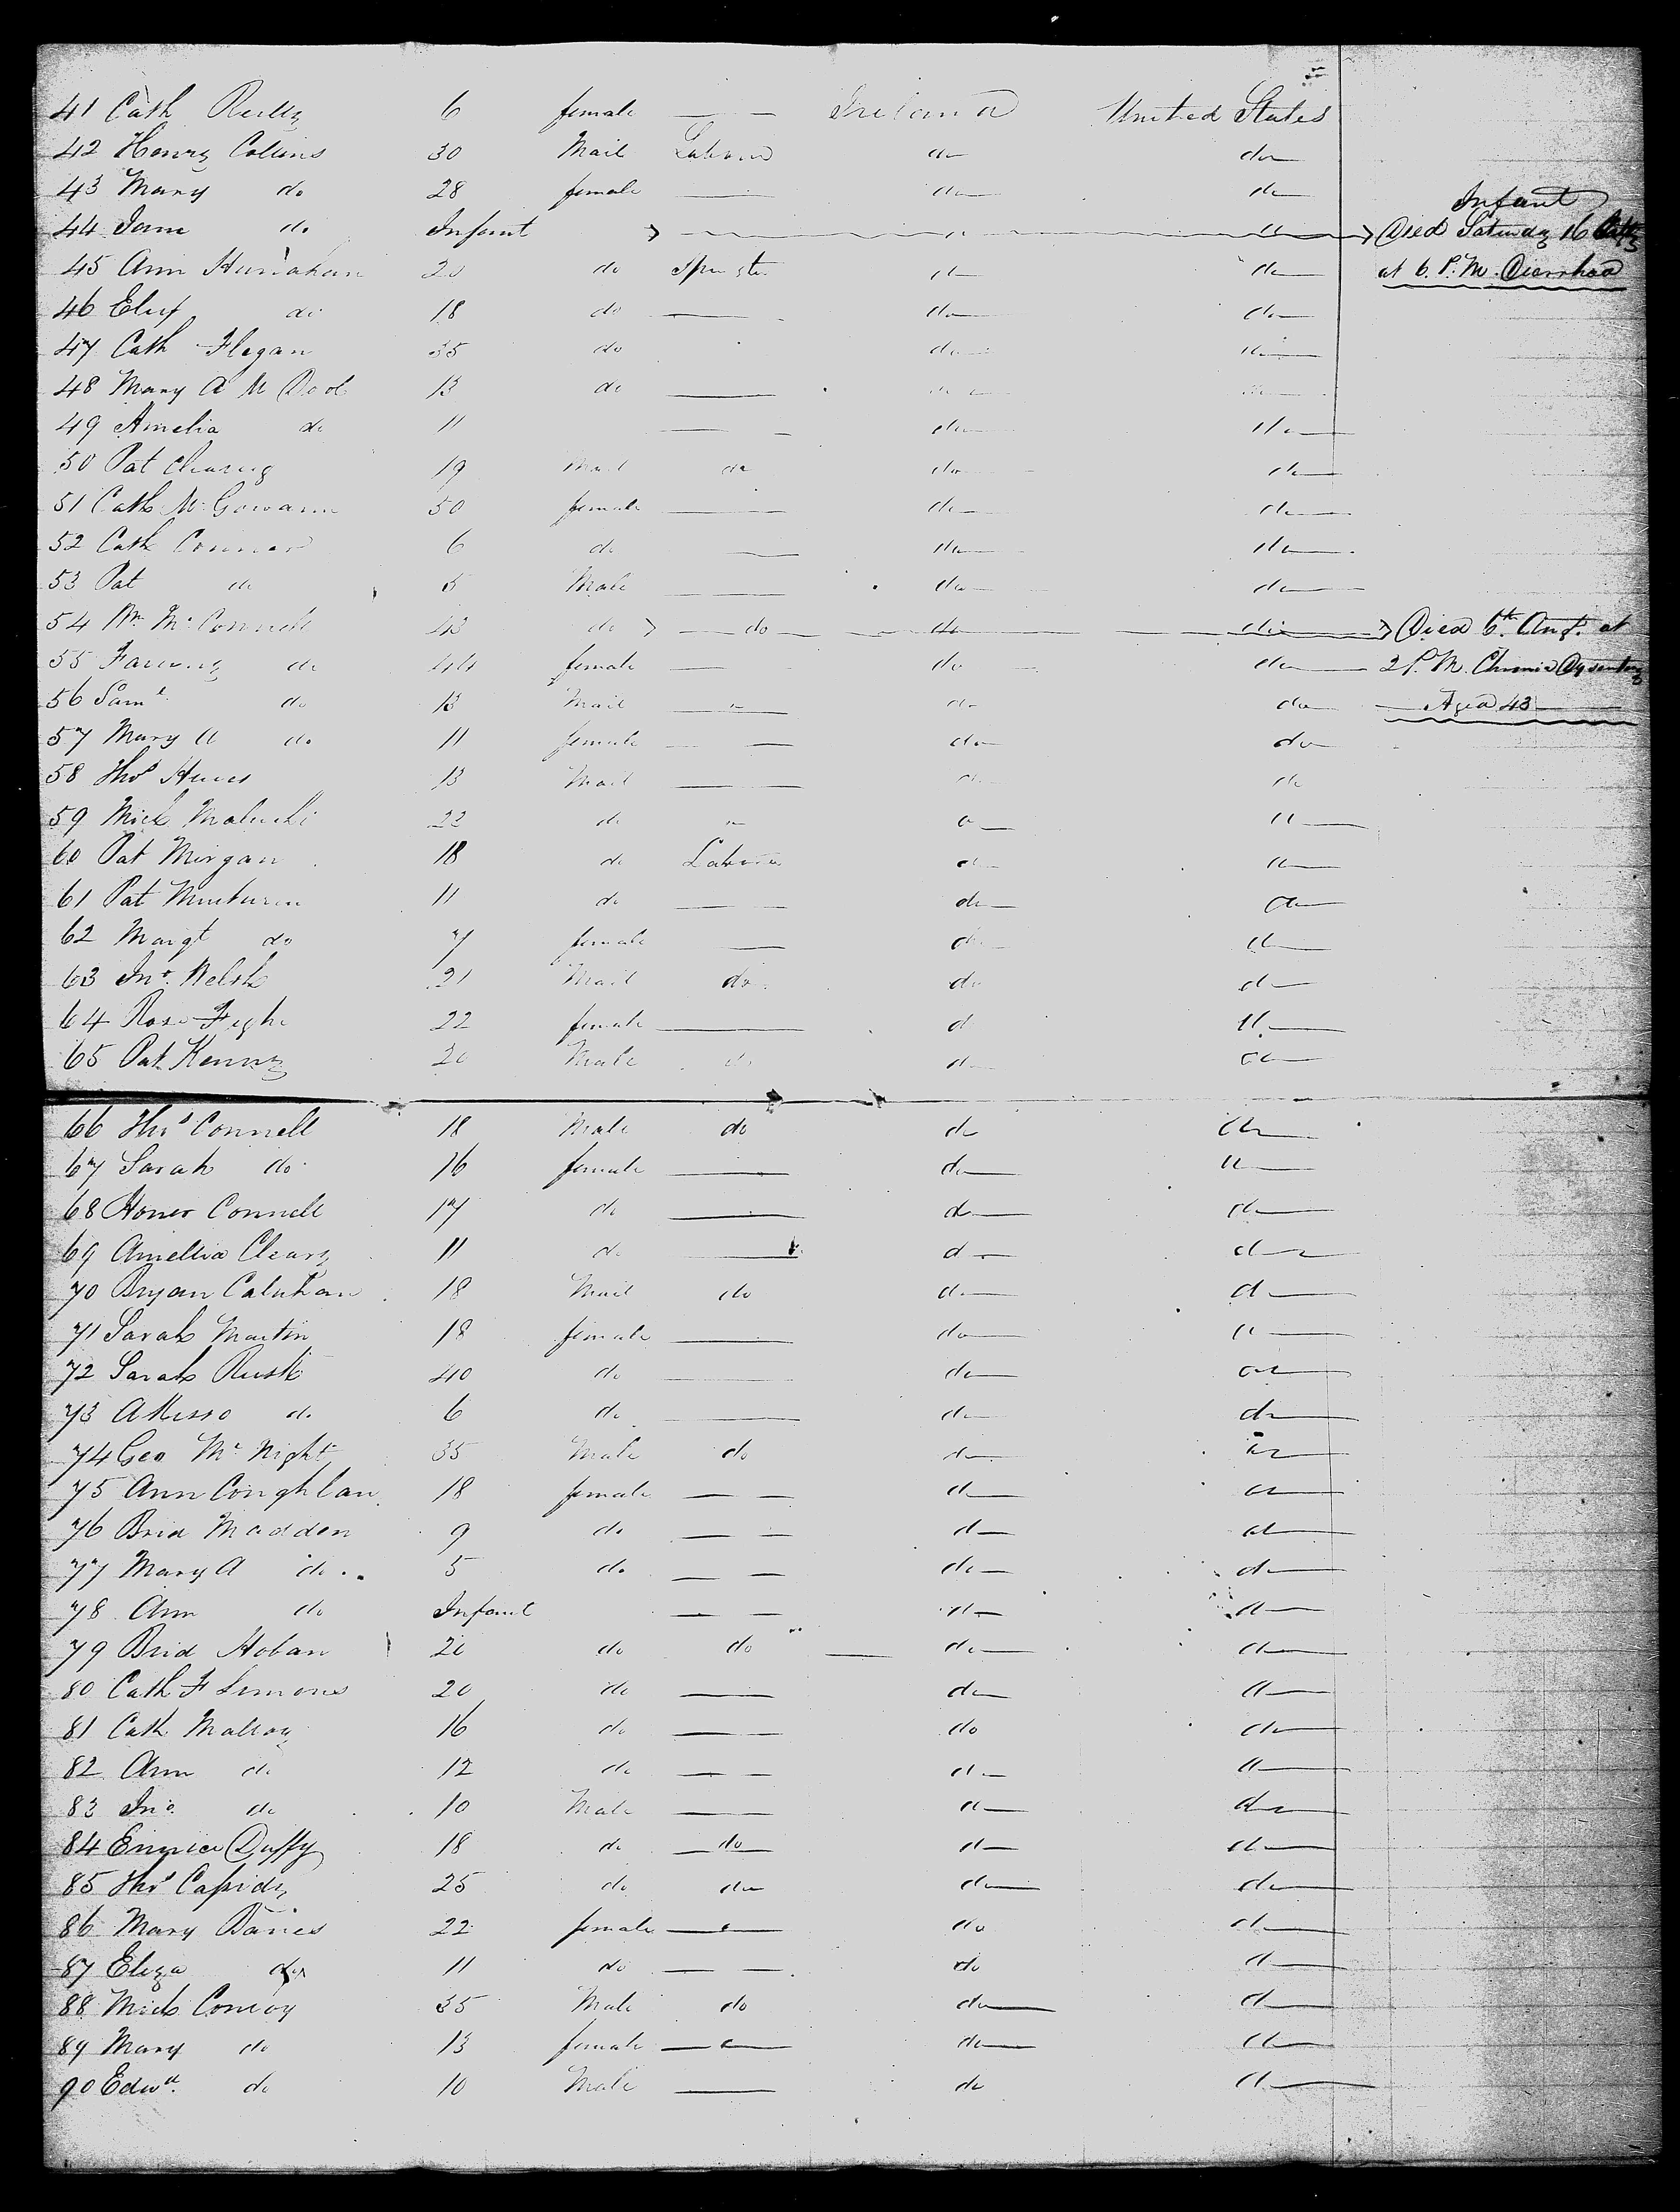 41 Cath Reilly 6 female Ireland United States
42 Henry Collins 30 Mail Labour do do
43 Mary do 28 female do do
Infant
44 Jane do Infant do do Died Saturday 16
45 Ann Hanahan 20 do Spinster do do at 6 P.M. Diarrhoea
46 do 18 do do do
47 Cath Flegan 35 do do do
48 Mary A Mc Dool 13 do do do
49 Amelia do 11 do do
50 Pat 19 Mail do do do
51 Cath Mc Gowann 50 female do do
52 Cath Connor 6 do do do
53 Pat do 5 Male do do
54 Wm Mc Connell 43 do do do do Died 6th Augt. at
55 do 44 female do do 2 P.M. Chronic Dysentery
56 Saml do 13 Mail do do Aged 43
57 Mary A do 11 female do do
58 Thos 13 Mail do do
59 Mick 22 do do do
60 Pat Morgan 18 do Labour do do
61 Pat 11 do do do
62 Margt do 7 female do do
63 Jno. Welsh 21 Mail do do do
64 Rose 22 female do do
65 Pat Kenny 20 Male do do do
66 Thos Connell 18 Male do do do
67 Sarah do 16 female do do
68 Honer Connell 17 do do do
69 Amellia Cleary 11 do do do
70 Bryan Calahan 18 Mail do do do
71 Sarah Martin 18 female do do
72 Sarah 40 do do do
73 do 6 do do do
74 Geo Mc Night 35 Male do do do
75 Ann Coughlan 18 female do do
76 Brid Madden 9 do do do
77 Mary A do 5 do do do
78 Ann do Infant do do
79 Brid Hoban 20 do do do do
80 Cath F Simons 20 do do do
81 Cath Malloy 16 do do do
82 Ann do 12 do do do
83 Jno. do 10 Male do do
84 Duffy 18 do do do do
85 Thos Cassidy 25 do do do do
86 Mary 22 female do do
87 Eliza do 11 do do do
88 Mick Conroy 35 Male do do do
89 Mary do 13 female do do
90 Edwd. do 10 Male do do